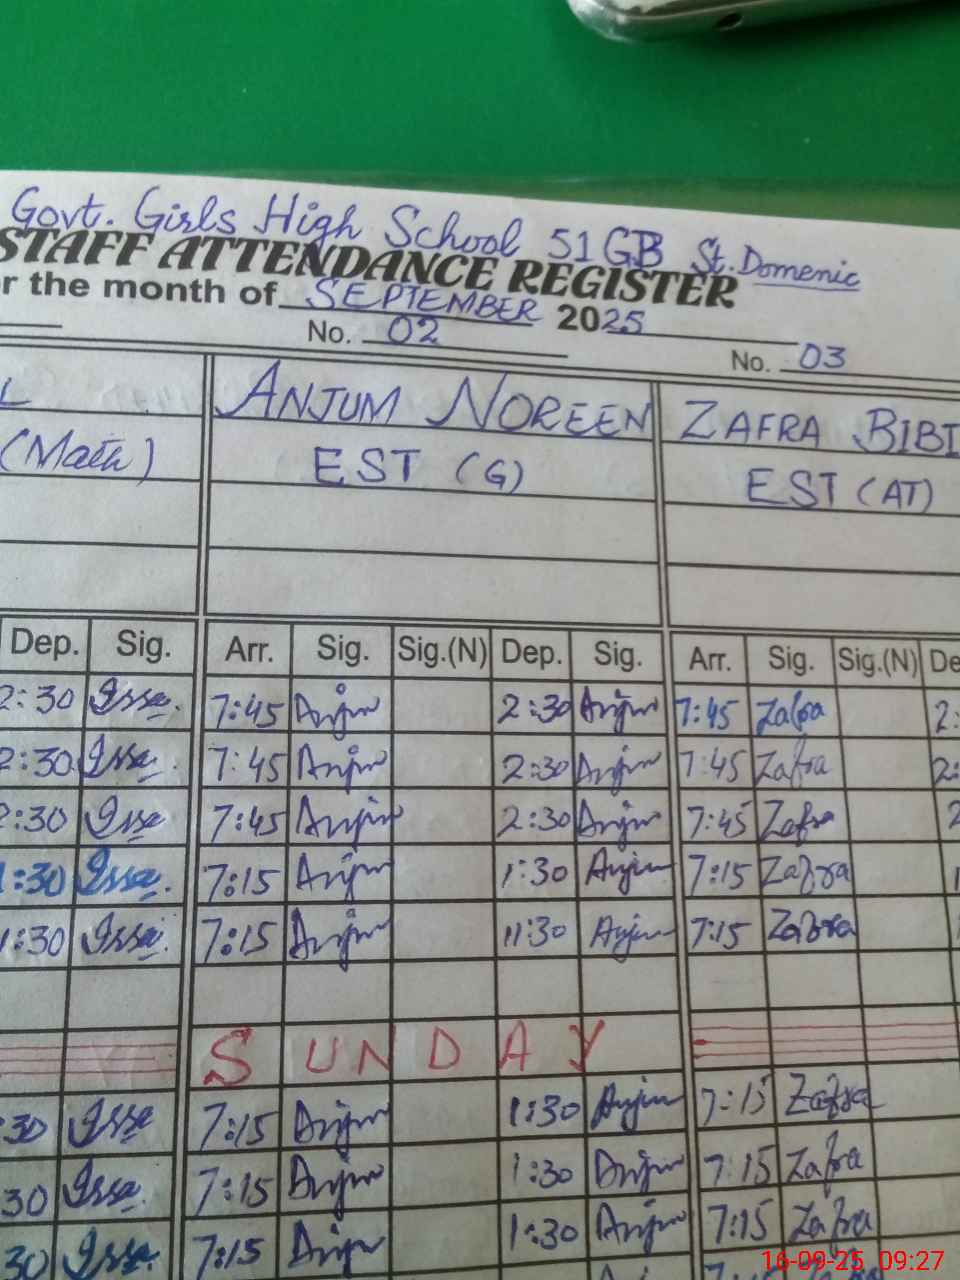 Govt. Girls High School 51GB St. Domenic
STAFF ATTENDANCE REGISTER
r the month of SEPTEMBER 2025
No. 02 No. 03
L ANJUM NOREEN ZAFRA BIBI
(Math) EST (G) EST (AT)
Dep. Sig. Arr. Sig. Sig.(N) Dep. Sig. Arr. Sig. Sig.(N) De
2:30 Issa. 7:45 Anjum 2:30 Anjum 7:45 Zafra 2:
2:30 Issa. 7:45 Anjum 2:30 Anjum 7:45 Zafra 2:
2:30 Issa 7:45 Anjum 2:30 Anjum 7:45 Zafra 2
1:30 Issa. 7:15 Anjum 1:30 Anjum 7:15 Zafra 1
1:30 Issa. 7:15 Anjum 11:30 Anjum 7:15 Zafra
SUNDAY
:30 Issa 7:15 Anjum 1:30 Anjum 7:15 Zafra
30 Issa. 7:15 Anjum 1:30 Anjum 7:15 Zafra
30 Issa. 7:15 Anjum 1:30 Anjum 7:15 Zafra
16-09-25 09:27